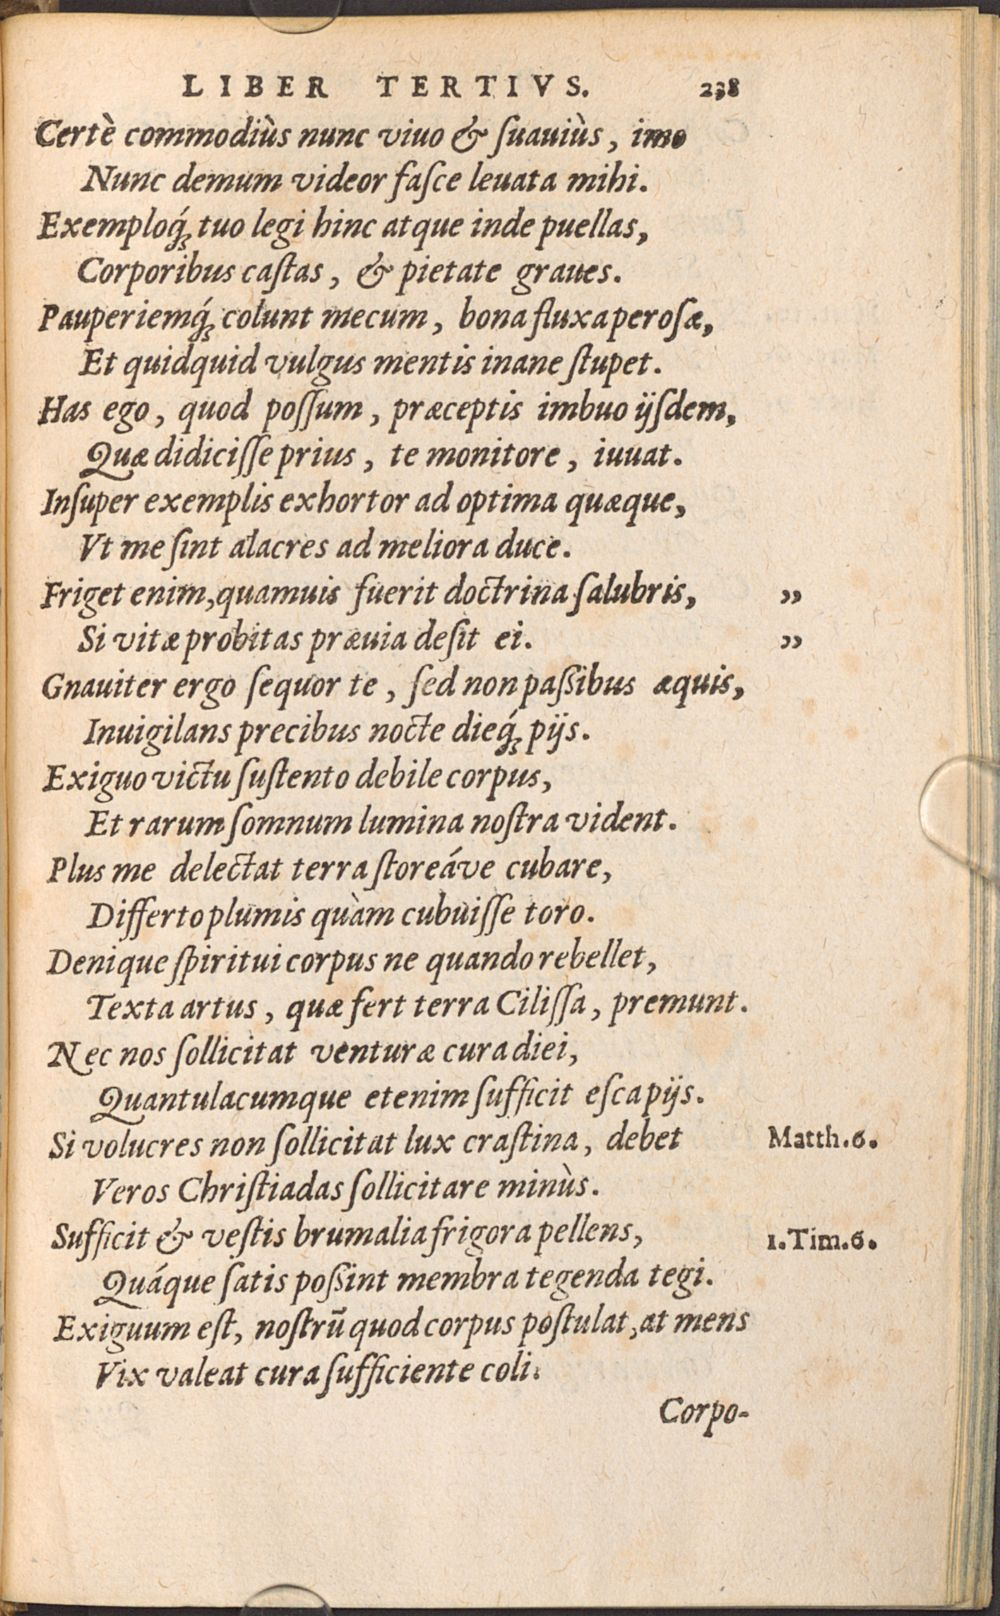 LIBER TERTIVS. 238
Certè commodiùs nunc viuo & ſuauiùs, imo
Nunc demum videor faſce leuata mihi.
Exemploq́; tuo legi hinc atque inde puellas,
Corporibus caſtas, & pietate graues.
Pauperiemq́; colunt mecum, bona fluxa peroſæ,
Et quidquid vulgus mentis inane ſtupet.
Has ego, quod poſſum, præceptis imbuo ijſdem,
Quæ didiciſſe prius, te monitore, iuuat.
Inſuper exemplis exhortor ad optima quæque,
Vt me ſint alacres ad meliora duce.
Friget enim, quamuis fuerit doctrina ſalubris, ”
Si vitæ probitas præuia deſit ei. ”
Gnauiter ergo ſequor te, ſed non paßibus æquis,
Inuigilans precibus nocte dieq́; pijs.
Exiguo victu ſuſtento debile corpus,
Et rarum ſomnum lumina noſtra vident.
Plus me delectat terra ſtoreáve cubare,
Differto plumis quàm cubuiſſe toro.
Denique ſpiritui corpus ne quando rebellet,
Texta artus, quæ fert terra Ciliſſa, premunt.
Nec nos ſollicitat venturæ cura diei,
Quantulacumque etenim ſufficit eſca pijs.
Si volucres non ſollicitat lux craſtina, debet Matth.6.
Veros Chriſtiadas ſollicitare minùs.
Sufficit & veſtis brumalia frigora pellens, 1.Tim.6.
Quáque ſatis poßint membra tegenda tegi.
Exiguum eſt, noſtrū quod corpus poſtulat, at mens
Vix valeat cura ſufficiente coli.
Corpo-